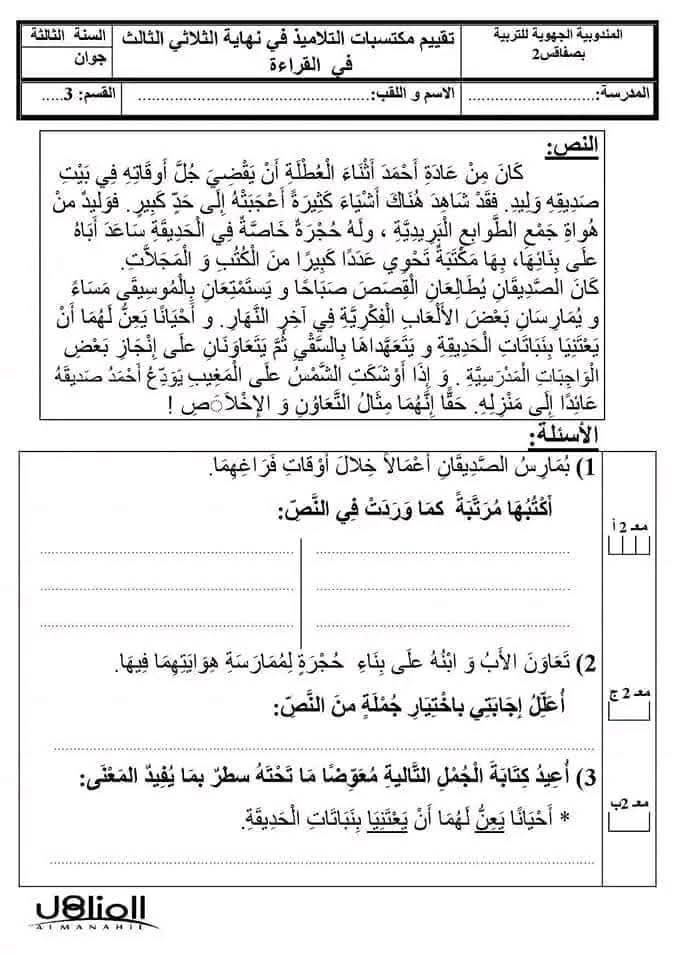 المندوبية الجهوية للتربية
بصفاقس2
تقييم مكتسبات التلاميذ في نهاية الثلاثي الثالث
في القراءة
السنة الثالثة
جوان
المدرسة:............................
الاسم و اللقب:.................................................
القسم: 3.....
النص:
كَانَ مِنْ عَادَةِ أَحْمَدَ أَثْنَاءَ الْعُطْلَةِ أَنْ يَقْضِيَ جُلَّ أَوْقَاتِهِ فِي بَيْتِ
صَدِيقِهِ وَلِيدِ. فَقَدْ شَاهَدَ هُنَاكَ أَشْيَاءَ كَثِيرَةً أَعْجَبَتْهُ إِلَى حَدٍّ كَبِيرٍ. فَوَلِيدٌ مِنْ
هُوَاةِ جَمْعِ الطَّوَابِعِ الْبَرِيدِيَّةِ ، وَلَهُ حُجْرَةٌ خَاصَّةٌ فِي الْحَدِيقَةِ سَاعَدَ أَبَاهُ
عَلَى بِنَائِهَا، بِهَا مَكْتَبَةٌ تَحْوِي عَدَدًا كَبِيرًا مِنَ الْكُتُبِ وَ الْمَجَلاَّتِ.
كَانَ الصَّدِيقَانِ يُطَالِعَانِ الْقِصَصَ صَبَاحًا وَ يَسْتَمْتِعَانِ بِالْمُوسِيقَى مَسَاءً
وَ يُمَارِسَانِ بَعْضَ الأَلْعَابِ الْفِكْرِيَّةِ فِي آخِرِ النَّهَارِ. وَ أَحْيَانًا يَعِنُّ لَهُمَا أَنْ
يَعْتَنِيَا بِنَبَاتَاتِ الْحَدِيقَةِ وَ يَتَعَهَّدَاهَا بِالسَّقْيِ ثُمَّ يَتَعَاوَنَانِ عَلَى إِنْجَازِ بَعْضِ
الْوَاجِبَاتِ الْمَدْرَسِيَّةِ . وَ إِذَا أَوْشَكَتِ الشَّمْسُ عَلَى الْمَغِيبِ يَوَدِّعُ أَحْمَدُ صَدِيقَهُ
عَائِدًا إِلَى مَنْزِلِهِ. حَقًّا إِنَّهُمَا مِثَالُ التَّعَاوُنِ وَ الإِخْلاَصِ !
الأسئلة:
1) يُمَارِسُ الصَّدِيقَانِ أَعْمَالاً خِلاَلَ أَوْقَاتِ فَرَاغِهِمَا.
أَكْتُبُهَا مُرَتَّبَةً كَمَا وَرَدَتْ فِي النَّصِّ:
معـ 2 أ
2) تَعَاوَنَ الأَبُ وَ ابْنُهُ عَلَى بِنَاءِ حُجْرَةٍ لِمُمَارَسَةِ هِوَايَتِهِمَا فِيهَا.
أُعَلِّلُ إِجَابَتِي بِاخْتِيَارِ جُمْلَةٍ مِنَ النَّصِّ:
معـ 2 ج
3) أُعِيدُ كِتَابَةَ الْجُمْلِ التَّالِيةِ مُعَوِّضًا مَا تَحْتَهُ سَطْرٌ بِمَا يُفِيدُ الْمَعْنَى:
* أَحْيَانًا يَعِنُّ لَهُمَا أَنْ يَعْتَنِيَا بِنَبَاتَاتِ الْحَدِيقَةِ.
معـ 2ب
المناهل
ALMANAHIL